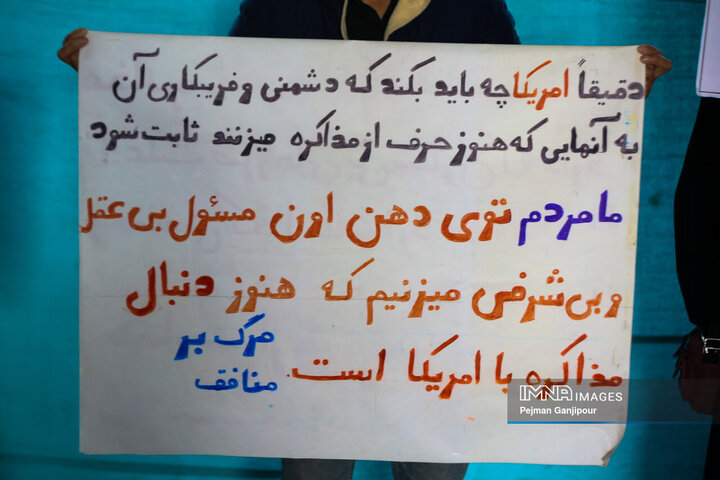 دقیقاً امریکا چه باید بکند که دشمنی و فریبکاری آن
به آنهایی که هنوز حرف از مذاکره میزنند ثابت شود
ما مردم توی دهن اون مسئول بی عقل
و بی شرفی میزنیم که هنوز دنبال
مذاکره با امریکا است.
مرگ بر
منافق
IMNA IMAGES
Pejman Ganjipour